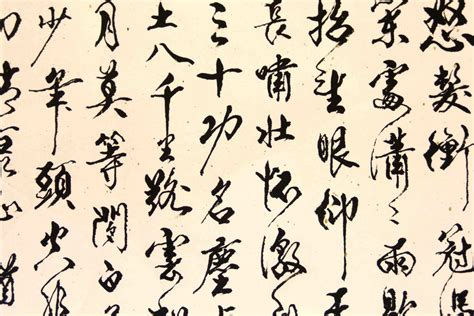 怒髮衝冠
處瀟々雨歇
抬望眼仰天
長嘯壯懷激
三十功名塵與
土八千里路雲和
月莫等閒白
少年頭空悲